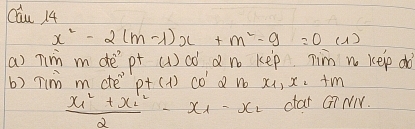 Câu 14
x² - 2(m-1)x + m² - 9 = 0 (1)
a) Tìm m để pt (1) có 2 no kép Tìm no kép đó
b) Tìm m để pt (1) có 2 no x₁, x₂ tm
x₁² + x₂² / 2 - x₁ - x₂ đạt GTNN.